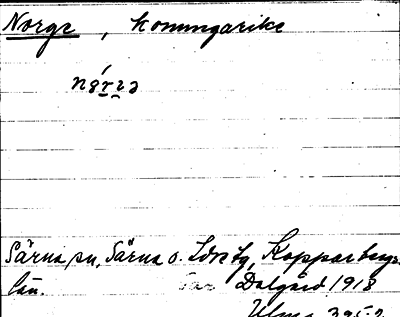 Norge, konungarike
Särna sn, Särna o. Idre tg, Kopparbergs
län. Dalgård 1918
Ulma